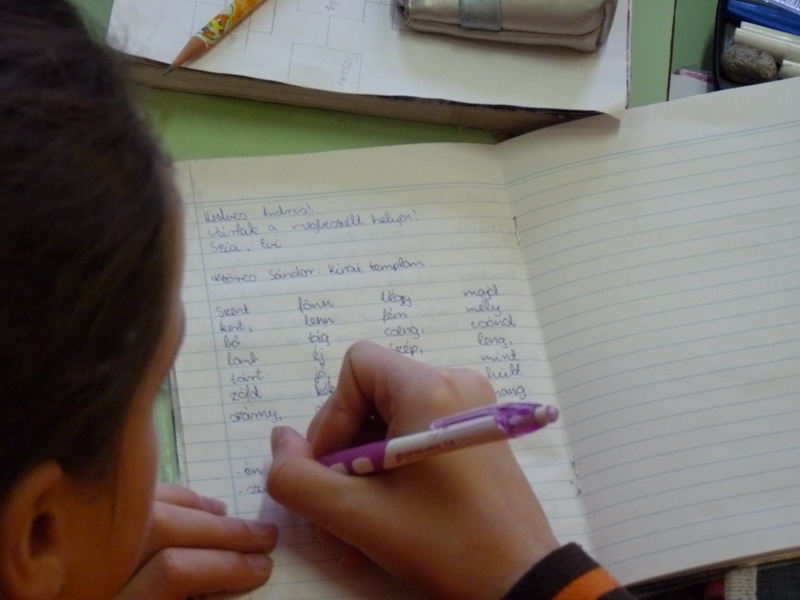 Kedves András!
Várlak a megbeszélt helyen!
Szia. Évi
Weöres Sándor: Kínai templom
Szent fönn Négy majd
kert, lenn fém mély
bő tág cseng. csönd
lomb éj Szép, leng,
tárt jő, mint
zöld kék hűlt
szárny, hang.